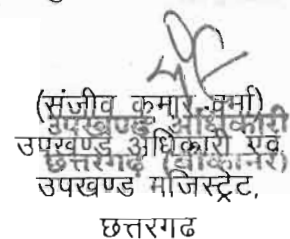 (संजीव कुमार वर्मा)
उपखण्ड अधिकारी
उपखण्ड अधिकारी एवं
छत्तरगढ़ (बीकानेर)
उपखण्ड मजिस्ट्रेट,
छत्तरगढ